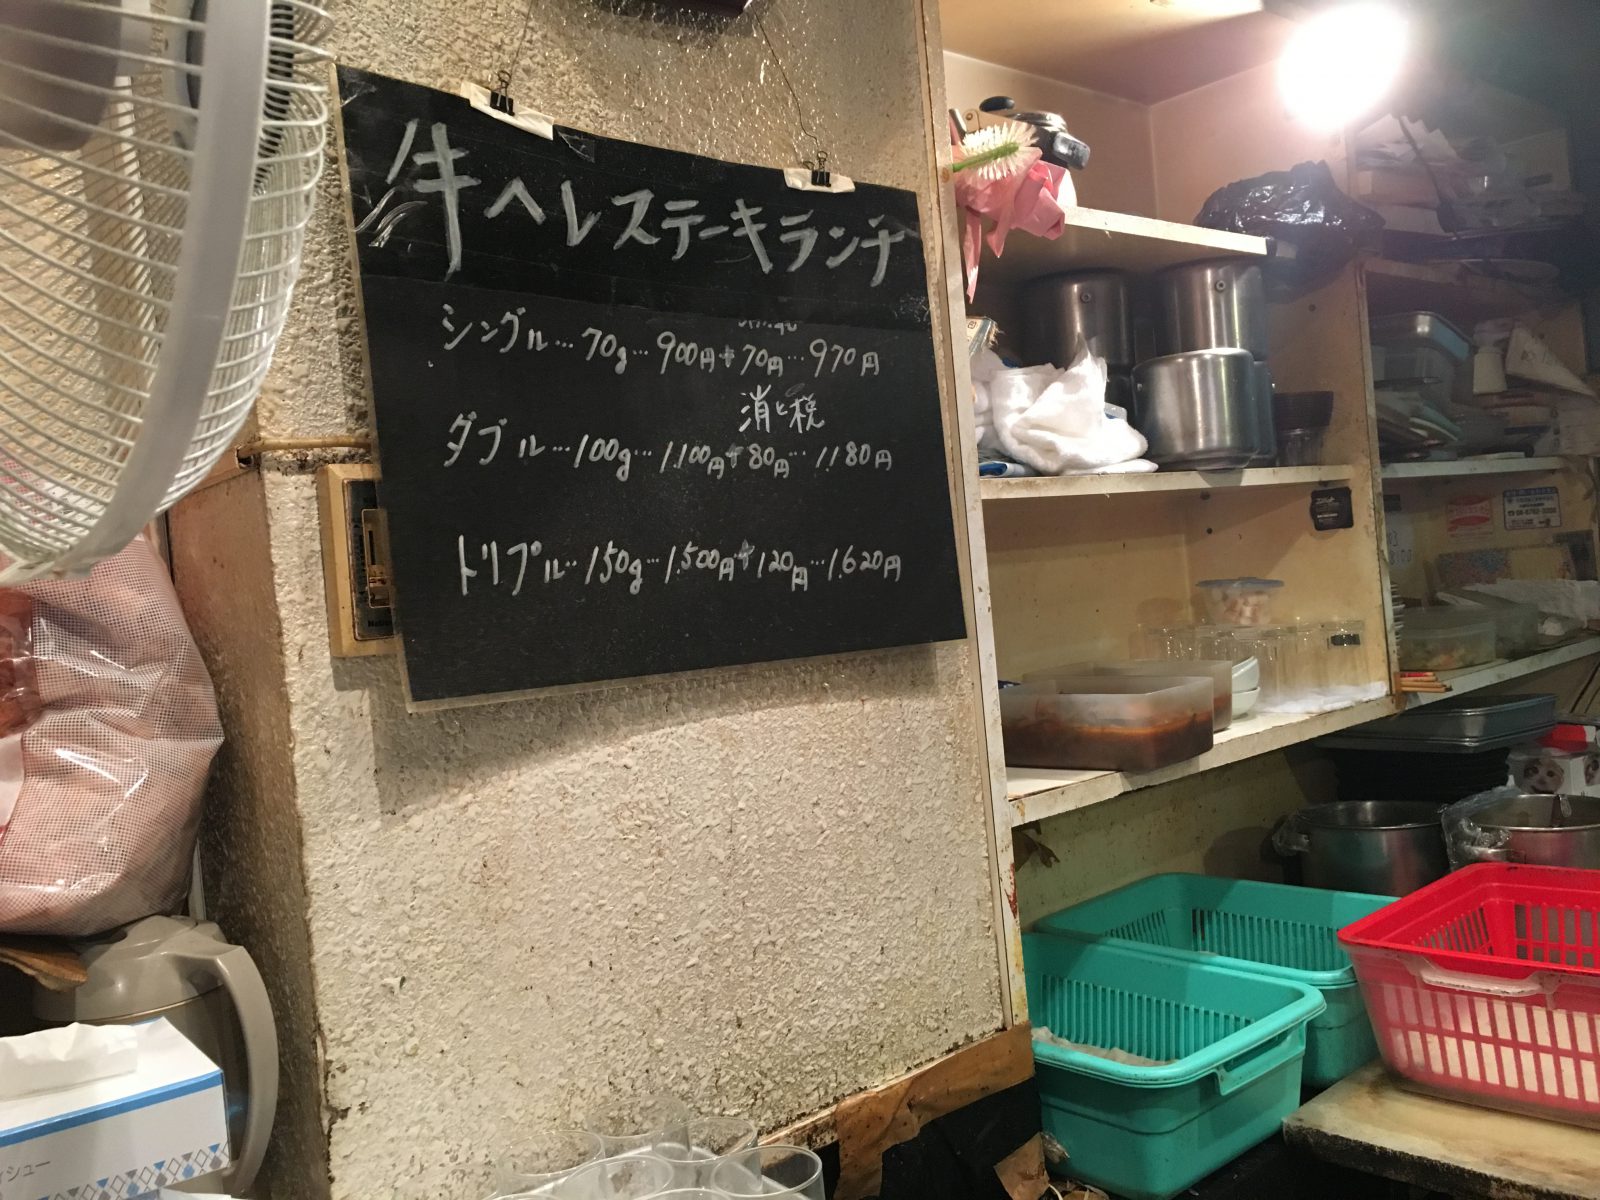 牛ヘレステーキランチ
シングル…70g…900円+70円…970円
消ヒ税
ダブル…100g…1.100円+80円…1.180円
トリプル…150g…1.500円+120円…1.620円